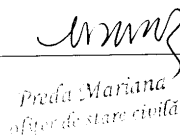 Preda Mariana
ofițer de stare civilă